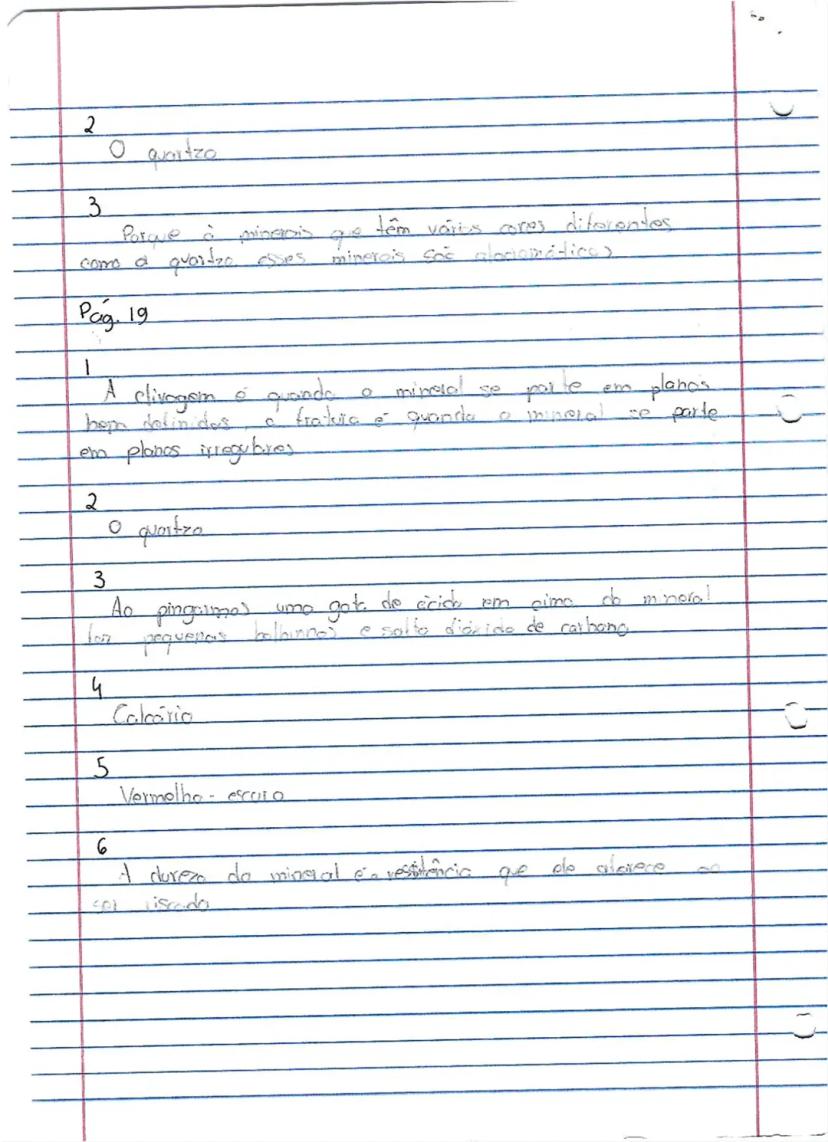 2
O quartzo
3
Porque à minerais que têm vários cores diferentes
como o quartzo esses minerais são alocromáticos
Pág. 19
1
A clivagem é quando o mineral se parte em planos
bem definidos, a fratura é quando o mineral se parte
em planos irregulares
2
O quartzo
3
Ao pingarmos uma gota de ácido em cima do mineral
faz pequenas bolhinhas e solta dióxido de carbono
4
Calcário
5
Vermelho - escuro
6
A dureza do mineral é a resistência que ele oferece ao
ser riscado